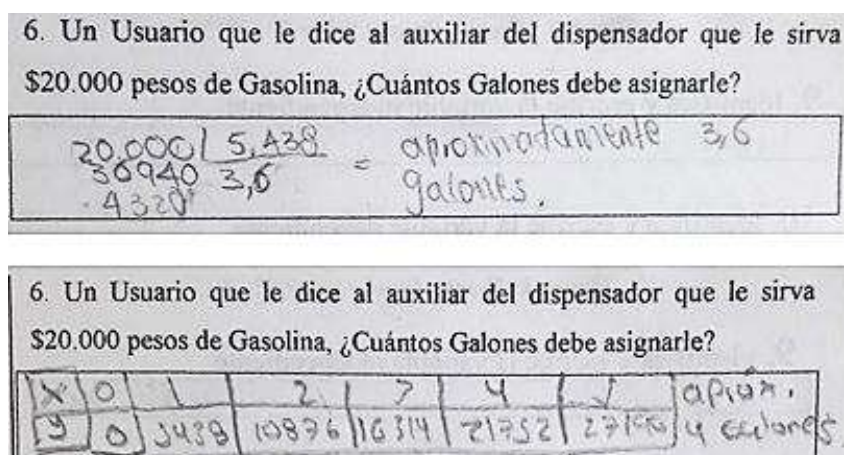 6. Un Usuario que le dice al auxiliar del dispensador que le sirva
$20.000 pesos de Gasolina, ¿Cuántos Galones debe asignarle?
20,000 5,438 = aproximadamente 3,6
36940 3,6 galones.
4320
6. Un Usuario que le dice al auxiliar del dispensador que le sirva
$20.000 pesos de Gasolina, ¿Cuántos Galones debe asignarle?
X 0 1 2 3 4 5 aprox.
y 0 5438 10876 16314 21752 4 galones